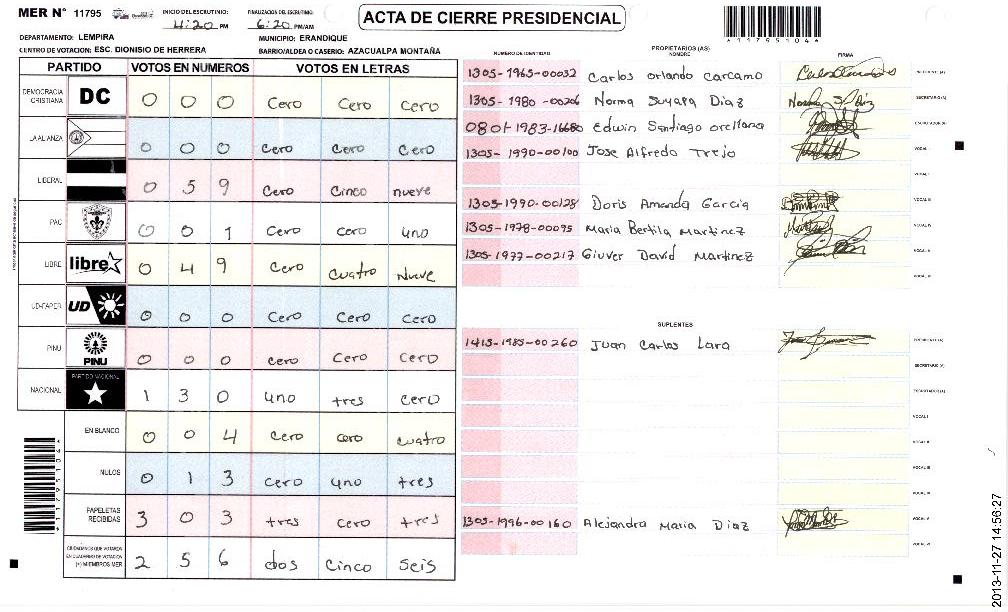 MER N° 11795
INICIO DEL ESCRUTINIO: 4:20 PM
FINALIZACION DEL ESCRUTINIO: 6:20 PM/AM
ACTA DE CIERRE PRESIDENCIAL
*11795104*
DEPARTAMENTO: LEMPIRA
MUNICIPIO: ERANDIQUE
CENTRO DE VOTACION: ESC. DIONISIO DE HERRERA
BARRIO/ALDEA O CASERIO: AZACUALPA MONTAÑA
PARTIDO VOTOS EN NUMEROS VOTOS EN LETRAS
DEMOCRACIA CRISTIANA DC 0 0 0 Cero Cero cero
LA ALIANZA 0 0 0 Cero Cero Cero
LIBERAL 0 5 9 Cero Cinco nueve
PAC 0 0 1 Cero cero uno
LIBRE libre 0 4 9 Cero cuatro Nueve
UD-FAPER UD 0 0 0 Cero Cero Cero
PINU PINU 0 0 0 cero Cero Cero
NACIONAL PARTIDO NACIONAL 1 3 0 uno tres cero
EN BLANCO 0 0 4 Cero cero cuatro
NULOS 0 1 3 cero uno tres
PAPELETAS RECIBIDAS 3 0 3 tres cero tres
CIUDADANOS QUE VOTARON EN CUADERNO DE VOTACION (+) MIEMBROS MER 2 5 6 dos Cinco Seis
PROPIETARIOS (AS)
NUMERO DE IDENTIDAD NOMBRE FIRMA
1305-1965-00032 Carlos orlando carcamo PRESIDENTE (A)
1305-1980-00206 Norma Suyapa Diaz SECRETARIO (A)
0801-1983-16680 Edwin Santiago orellana ESCRUTADOR (A)
1305-1990-00100 Jose Alfredo Trejo VOCAL I
VOCAL II
1305-1990-00128 Doris Amanda Garcia VOCAL III
1305-1978-00095 Maria Bertila Martinez VOCAL IV
1305-1977-00217 Giuver David Martinez VOCAL V
VOCAL VI
SUPLENTES
1413-1985-00260 Juan Carlos Lara PRESIDENTE (A)
SECRETARIO (A)
ESCRUTADOR (A)
VOCAL I
VOCAL II
VOCAL III
VOCAL IV
1305-1996-00160 Alejandra Maria Diaz VOCAL V
VOCAL VI
*11795104*
2013-11-27 14:56:27